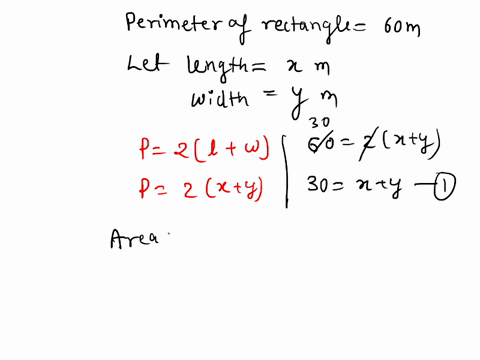 Perimeter of rectangle = 60m
Let length = x m
width = y m
P = 2(l + w)
P = 2(x+y)
30
60 = 2(x+y)
30 = x+y — 1
Area